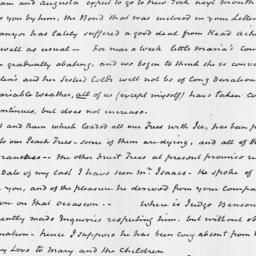 am and Augusta expect to go to New York next month
you by him, the Bond that was inclosed in your Letter
anyor has lately suffered a good deal from Head Ache
well as usual — For near a week little Maria's com
gradually abating, and we begin to think she is conva
lin's and her Sister's Colds will not be of long Duration
ariable weather, all of us (except myself) have taken Co
ontinues, but does not increase.
s and rain which loaded all our Trees with Ice, has been p
to our Peach Trees - some of them are dying, and all of th
ranches — The other Fruit Trees at present promise
Date of my last I have seen Mr. Isaacs. He spoke of
you, and of the pleasure he derived from your Compa
on on that occasion -- Where is Judge Benson
ently made Inquiries respecting him, but without ob
mation - hence I suppose he has been long absent from
y Love to Mary and the Children